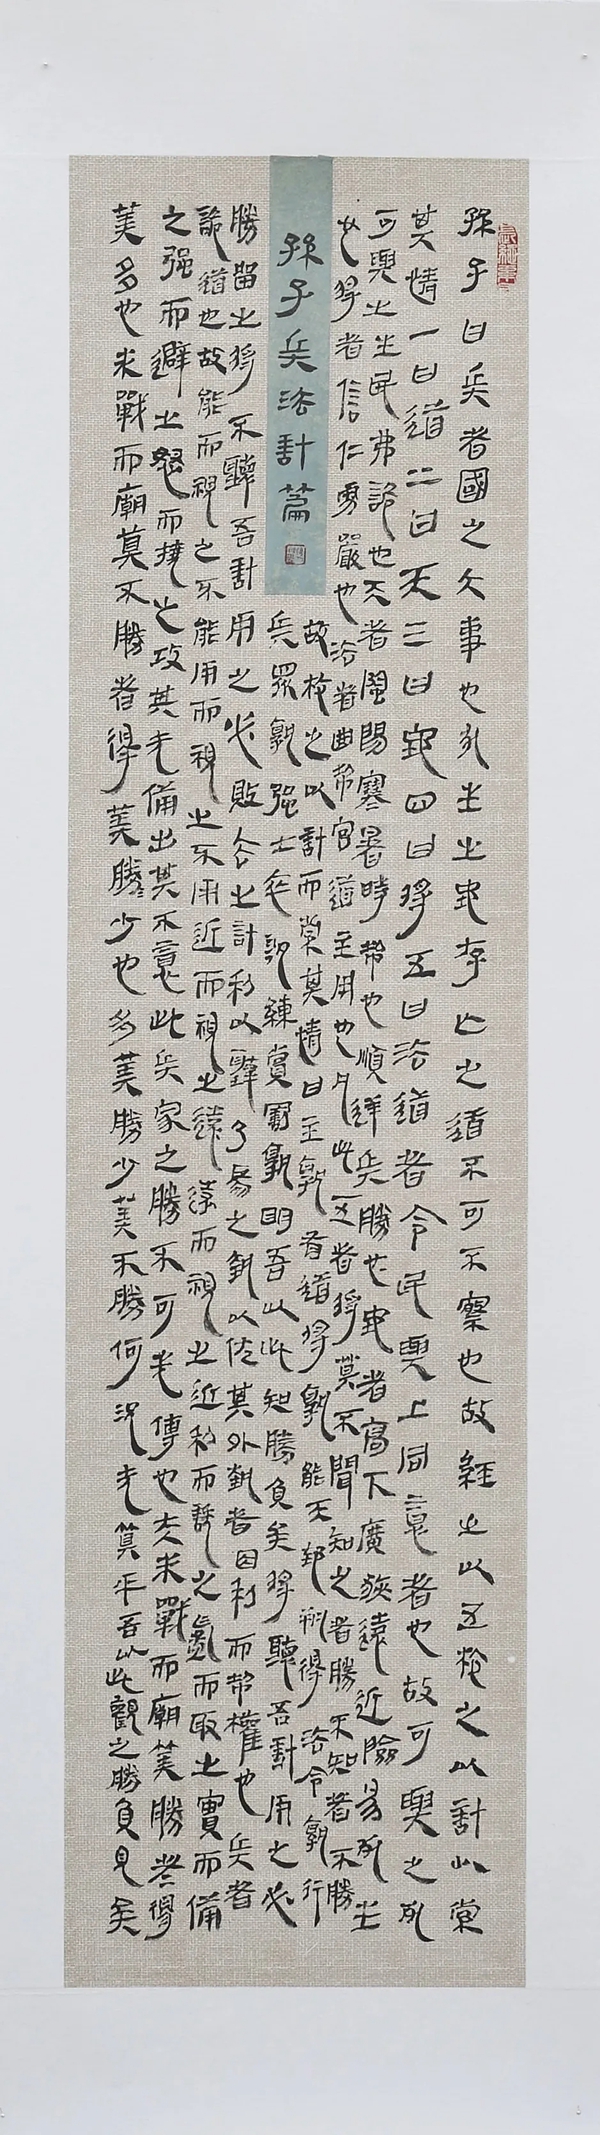 孫子曰兵者國之大事也死生之地存亡之道不可不察也故經之以五校之以計以索
其情一曰道二曰天三曰地四曰將五曰法道者令民與上同意者也故可與之死
可與之生民弗詭也天者陰陽寒暑時制也順逆兵勝也地者高下廣狹遠近險易死生
也將者信仁勇嚴也法者曲制官道主用也凡此五者將莫不聞知之者勝不知者不勝
孫子兵法計篇
故校之以計而索其情曰主孰有道將孰能天地孰得法令孰行
兵眾孰強士卒孰練賞罰孰明吾以此知勝負矣將聽吾計用之必
勝留之將不聽吾計用之必敗去之計利以聽乃為之勢以佐其外勢者因利而制權也兵者
詭道也故能而視之不能用而視之不用近而視之遠遠而視之近利而誘之亂而取之實而備
之強而避之怒而撓之攻其無備出其不意此兵家之勝不可先傳也夫未戰而廟筭勝者得
筭多也未戰而廟筭不勝者得筭勝少也多筭勝少筭不勝何況無筭乎吾以此觀之勝負見矣